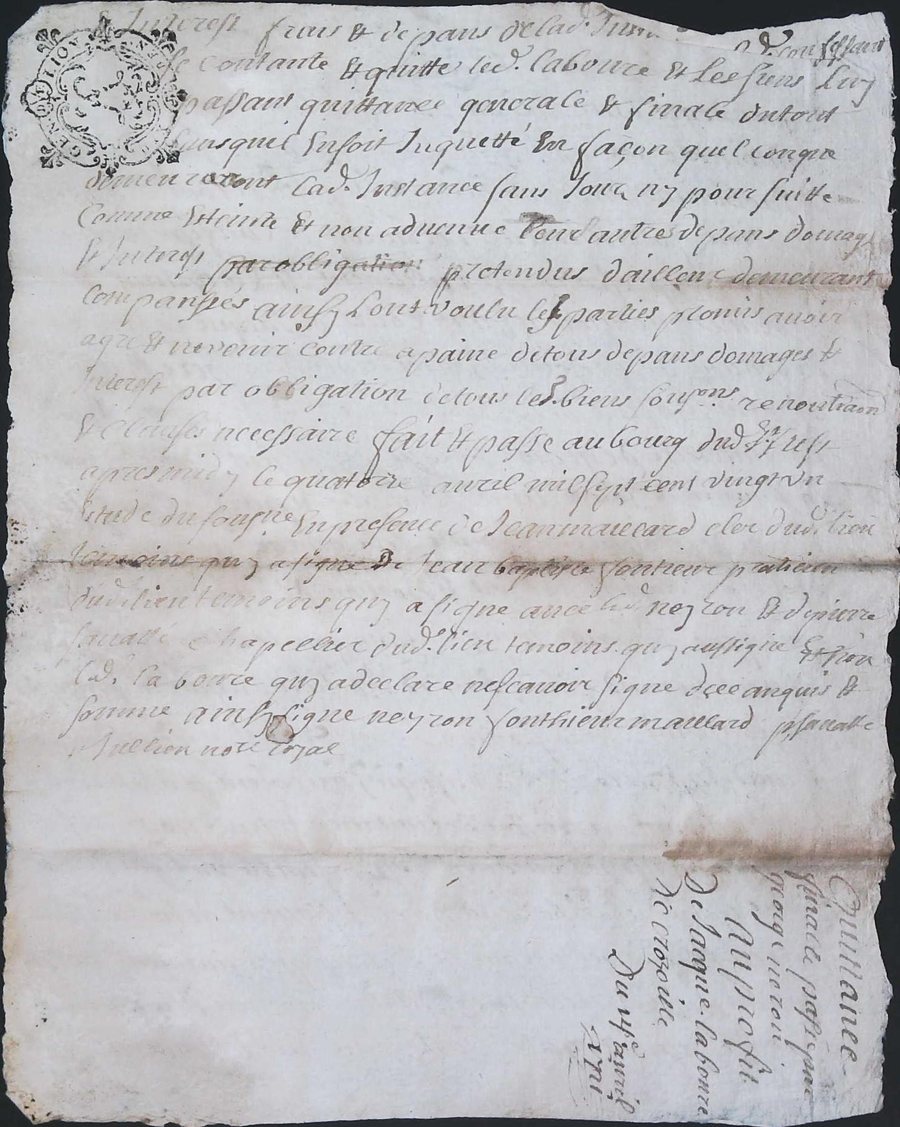 & Interest frais & depans de lad. Inst
se Contante & quitte led. laboure & Les siens Luy
passant quittance generale & finale du tout
jusquil Ensoit Inquetté En façon quelconque
demeurant Lad. Instance sans Jour ny poursuitte
Comme Eteinte & non advenue tout autres depans domag
& Interest par obligation pretendus dailleur demeurant
Compansés ainsy Lont voulu les parties promis avoir
agre & ne venir contre apaine de tous depans domages &
Interest par obligation de tous les biens renontiaon
& Clauses necessaire fait & passe au bourg dud. St Just
apres midy le quatorze avril mil sept cent vingt un
Etude du sousigne En presence de Jean maillard clerc dud. lieu
temoins quy a signe De Jean baptiste fonthieur praticien
dud. lieu temoins quy a signe avec led. neyron & de pierre
favatte Chapellier dud. lieu temoins quy aussigne & non
led. laboure quy a declare ne scavoir signe de ce anquis &
somme ainsy signe neyron fonthieur maillard p favatte
& Jullien nore royal
Quittance
finale passe par
george neron
Au profit
De Jacque laboure
De crozoille
Du 14e avril
1721
GEN DE LION